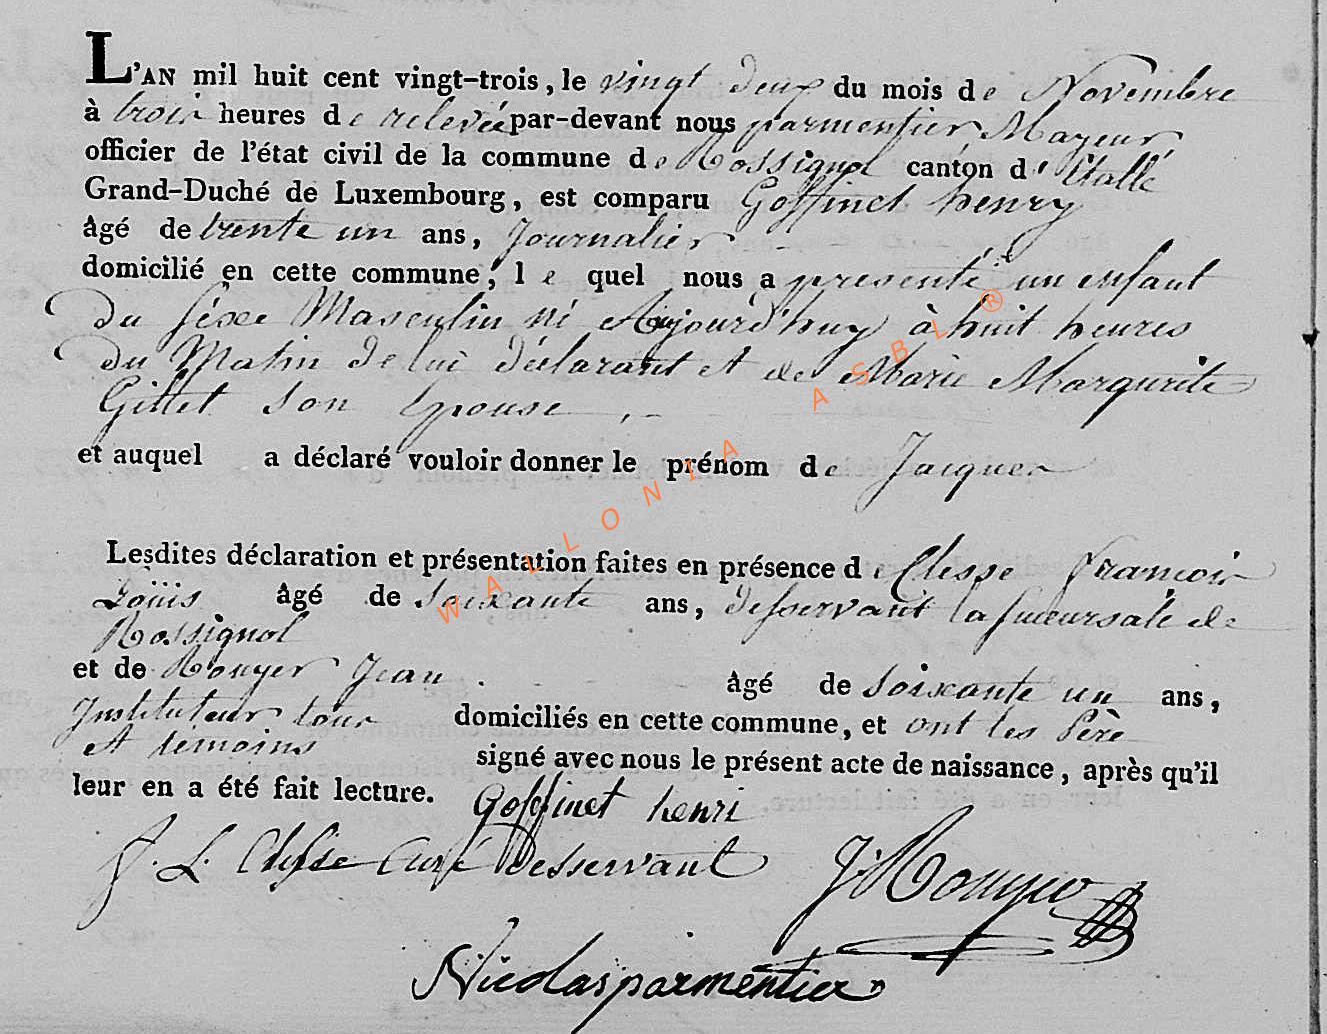 L'AN mil huit cent vingt-trois, le vingt deux du mois de Novembre
à trois heures de relevée par-devant nous parmentier Mayeur
officier de l'état civil de la commune de Rossignol canton d'Etalle
Grand-Duché de Luxembourg, est comparu Goffinet henry
âgé de trente un ans, Journalier
domicilié en cette commune, lequel nous a presenté un enfant
du séxe Masculin né Aujourd'huy à huit heures
du Matin de lui déclarant et de Marie Margurite
Gillet son Epouse,
et auquel a déclaré vouloir donner le prénom de Jacques
Lesdites déclaration et présentation faites en présence de Clesse François
Louis âgé de soixante ans, desservant la succursale de
Rossignol
et de Rouyer Jean. âgé de soixante un ans,
Instituteur tous domiciliés en cette commune, et ont les Père
et témoins signé avec nous le présent acte de naissance, après qu'il
leur en a été fait lecture.
Goffinet henri
F. L. Clesse Curé Desservant J. Rouyer
Nicolas parmentier
WALLONIA ASBL ®